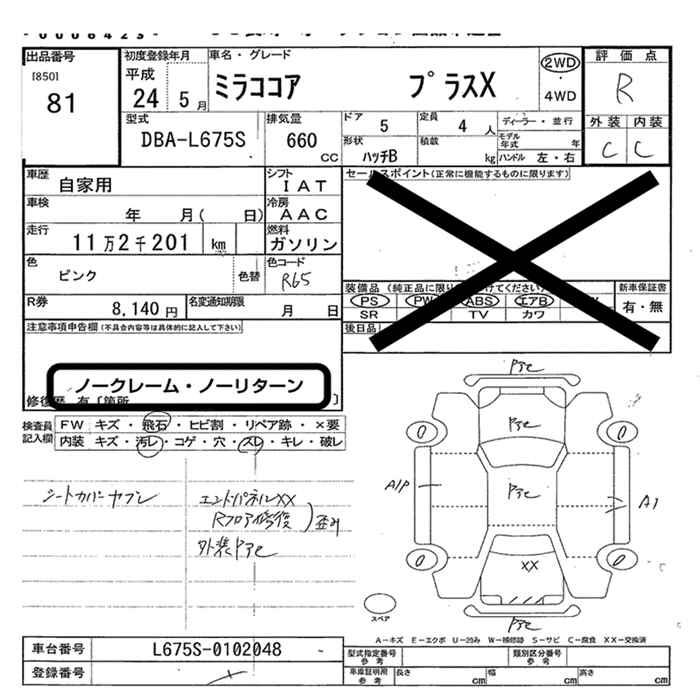 出品番号
[850]
81
初度登録年月
平成
24 5 月
車名・グレード
ミラココア プラスX
2WD
・
4WD
評価点
R
外装 内装
C C
型式
DBA-L675S
排気量
660
cc
ドア
5
定員
4 人
形状
ハッチB
積載
kg
ディーラー・並行
モデル年式 年
ハンドル 左・右
車歴
自家用
シフト
IAT
車検
年 月( 日)
冷房
AAC
走行
11万2千201 km
燃料
ガソリン
色
ピンク
色替
色コード
R65
R券
8,140 円
名変通知期限
月 日
セールスポイント(正常に機能するものに限ります)
PS PW ABS エアB
SR TV カワ
後日品
新車保証書
有・無
注意事項申告欄(不具合内容等は具体的に記入して下さい)
ノークレーム・ノーリターン
検査員記入欄
FW キズ・飛石・ヒビ割・リペア跡・×要
内装 キズ・汚レ・コゲ・穴・スレ・キレ・破レ
シートカバーヤブレ
エンドパネルXX
Rフロア修復
歪み
外装PPC
A1P
A1
XX
スペア
A-キズ E-エクボ U-凹み W-補修跡 S-サビ C-腐食 XX-交換済
車台番号
L675S-0102048
登録番号
型式指定番号
参考
類別区分番号
参考
車庫証明用
参考
長さ cm
幅 cm
高さ cm